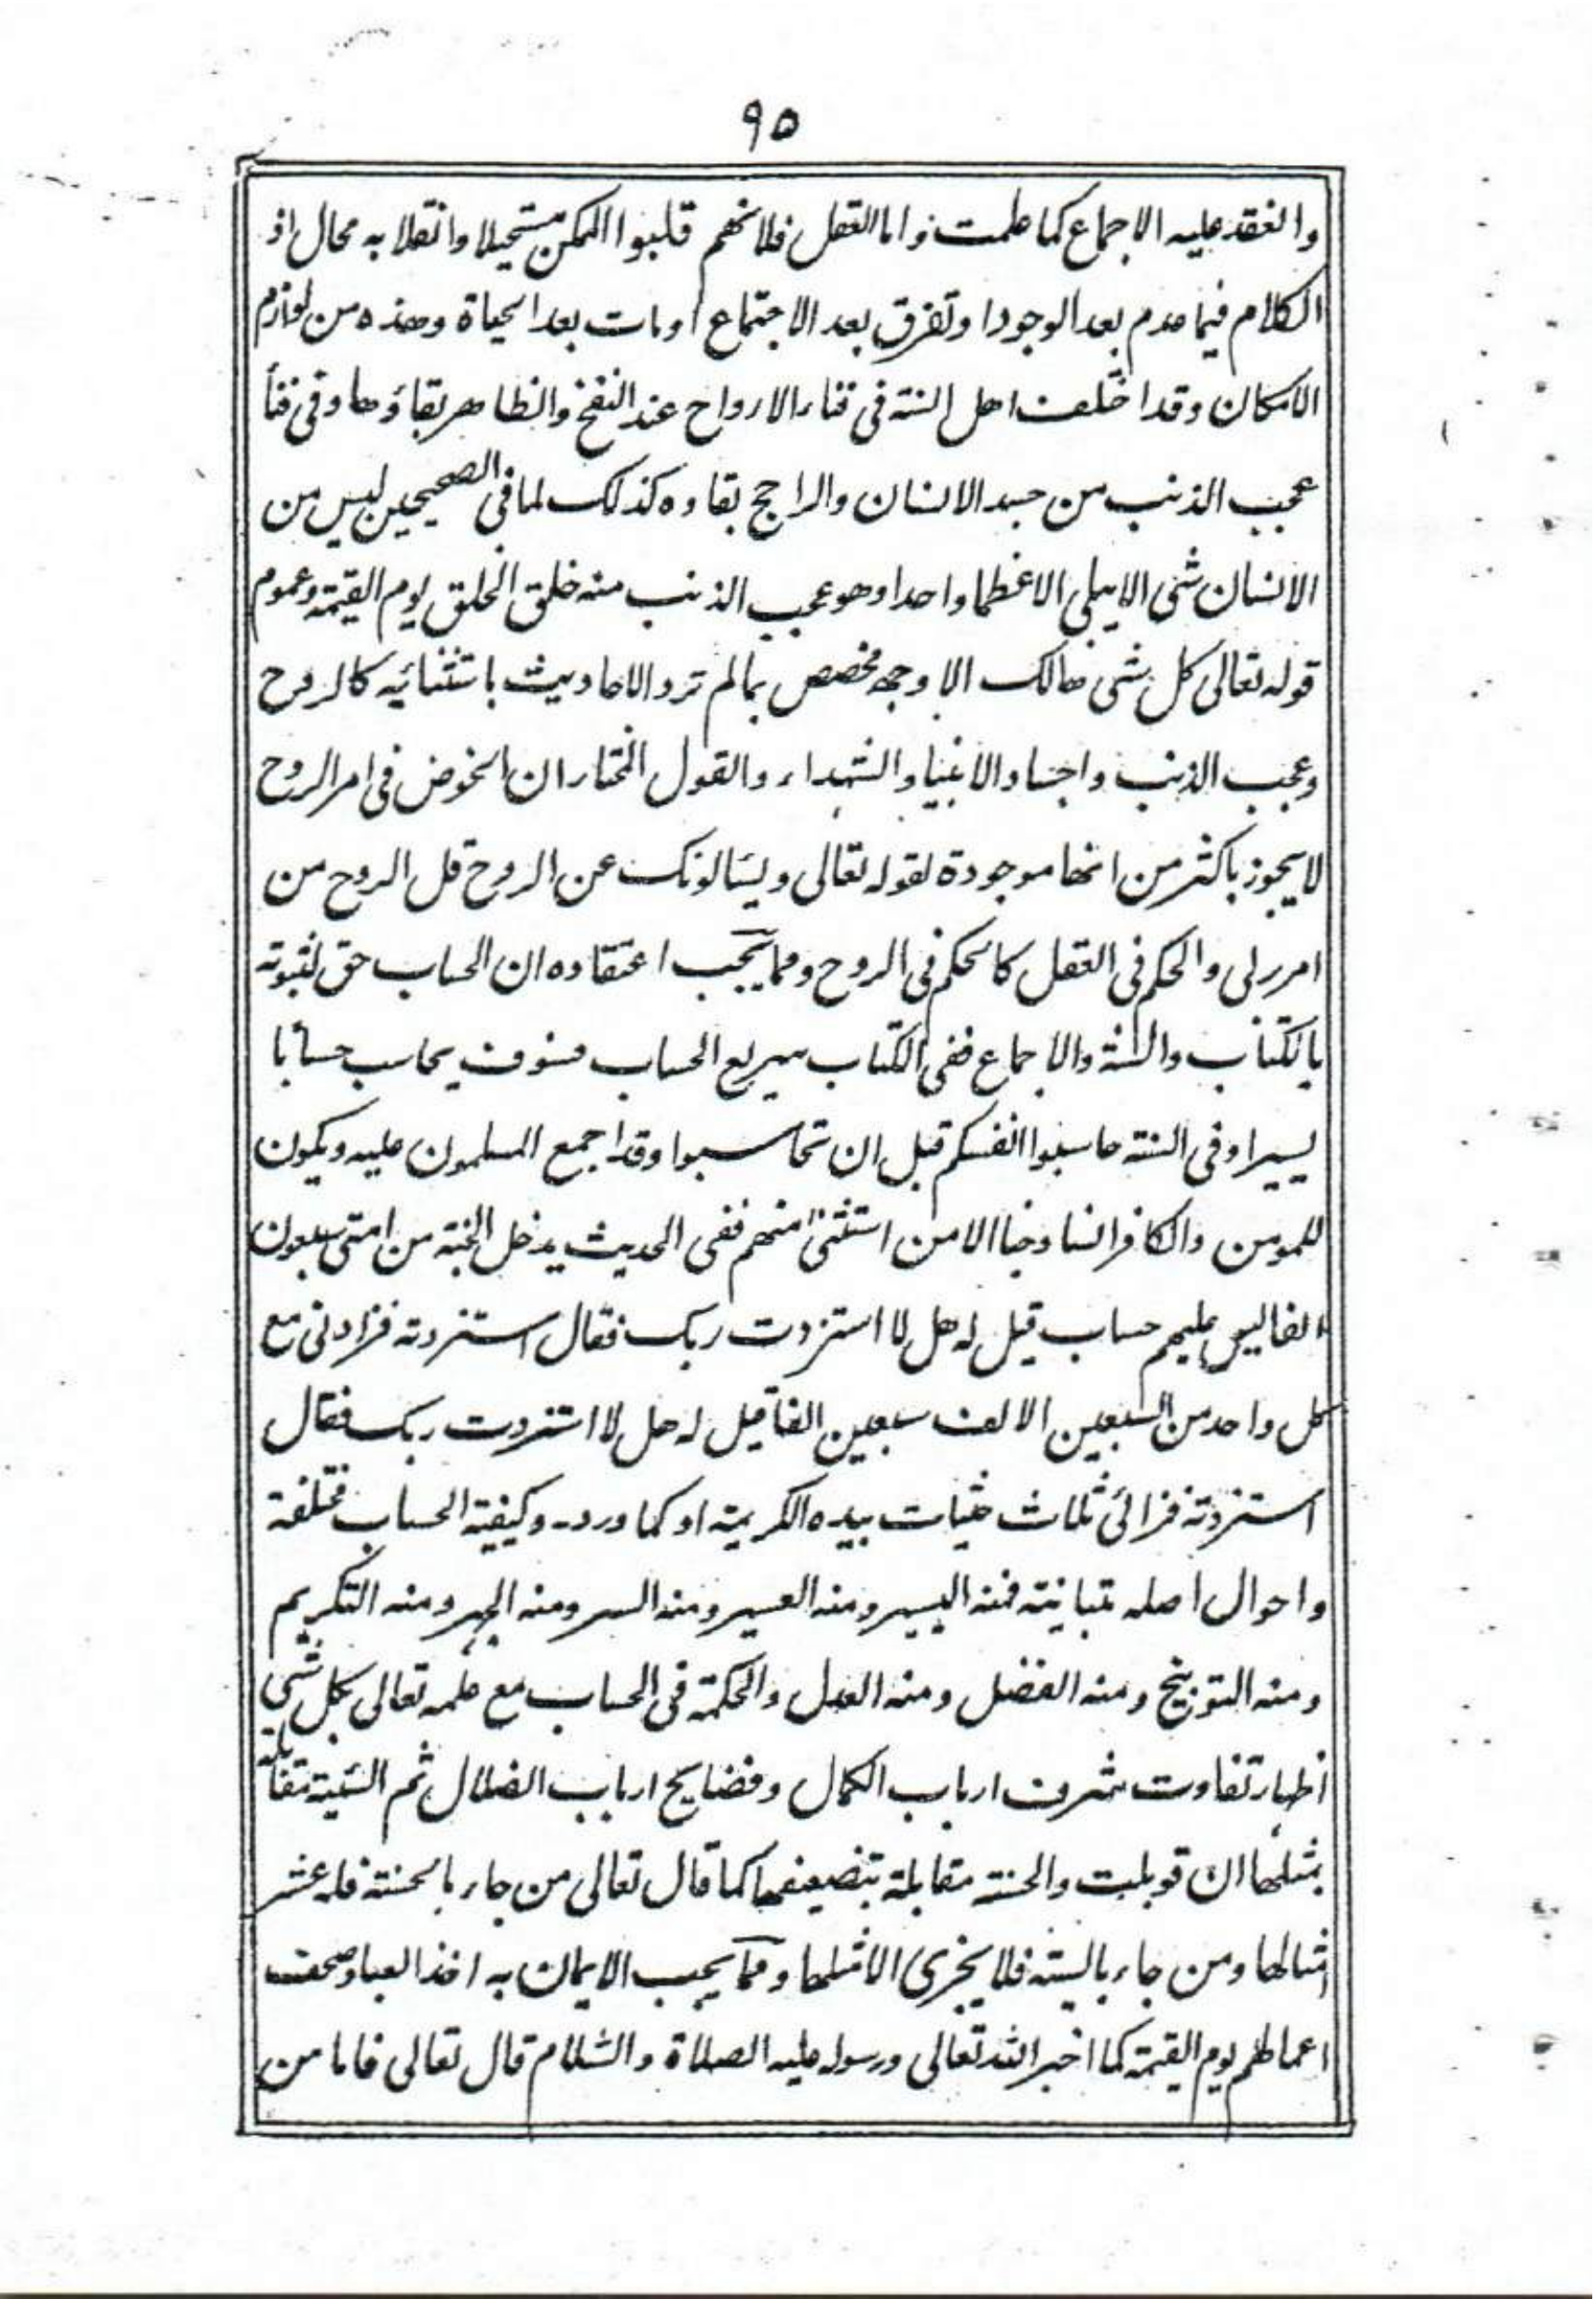 ۹۵
وانعقد عليه الاجماع كما علمت واما العقل فلانهم قلبوا الممكن مستحيلا وانقلابه محال اذ
الكلام فيما عدم بعد الوجود او تفرق بعد الاجتماع او مات بعد الحياة وهذه من لوازم
الامكان وقد اختلف اهل السنة فى فناء الارواح عند النفخ والظاهر بقاؤها وفى فنأ
عجب الذنب من جسد الانسان والراجح بقاوه كذلك لما فى الصحيحين ليس من
الانسان شئ الا يبلى الا عظما واحدا وهو عجب الذنب منه خلق الخلق يوم القيمة وعموم
قوله تعالى كل شئ هالك الا وجهه مخصص بما لم ترد الاحاديث باستثنائيه كالروح
وعجب الذنب واجساد الانبياء والشهداء والقول المختار ان الخوض فى امر الروح
لا يجوز باكثر من انها موجودة لقوله تعالى ويسئالونك عن الروح قل الروح من
امر ربى والحكم فى العقل كالحكم فى الروح ومما يجب اعتقاده ان الحساب حق لثبوته
بالكتاب والسنة والاجماع ففى الكتاب سريع الحساب فسوف يحاسب حسأبا
يسيرا وفى السنة حاسبوا انفسكم قبل ان تحاسبوا وقد اجمع المسلمون عليه ويكون
للمومن والكافر انسا وجنا الا من استثنى منهم ففى الحديث يدخل الجنة من امتى سبعون
الفا ليس عليهم حساب قيل له هل لا استزدت ربك فقال استزدته فزادنى مع
كل واحد من السبعين الالف سبعين الفا قيل له هل لا استزدت ربك فقال
استزدته فزادنى ثلاث حثيات بيده الكريمة او كما ورد۔ وكيفية الحساب مختلفة
واحوال اصله متباينة فمنه اليسير ومنه العسير ومنه السر ومنه الجهر ومنه التكريم
ومنه التوبيخ ومنه الفضل ومنه العدل والحكمة فى الحساب مع علمه تعالى بكل شئ
اظهار تفاوت شرف ارباب الكمال وفضايح ارباب الضلال ثم السئية مقابلة
بمثلها ان قوبلت والحسنة مقابلة بتضيعفها كما قال تعالى من جاء بالحسنة فله عشر
امثالها ومن جاء بالسيئة فلا يجزى الا مثلها ومما يجب الايمان به اخذ العباد صحف
اعمالهم يوم القيمة كما اخبر الله تعالى ورسوله عليه الصلاة والسلام قال تعالى فاما من